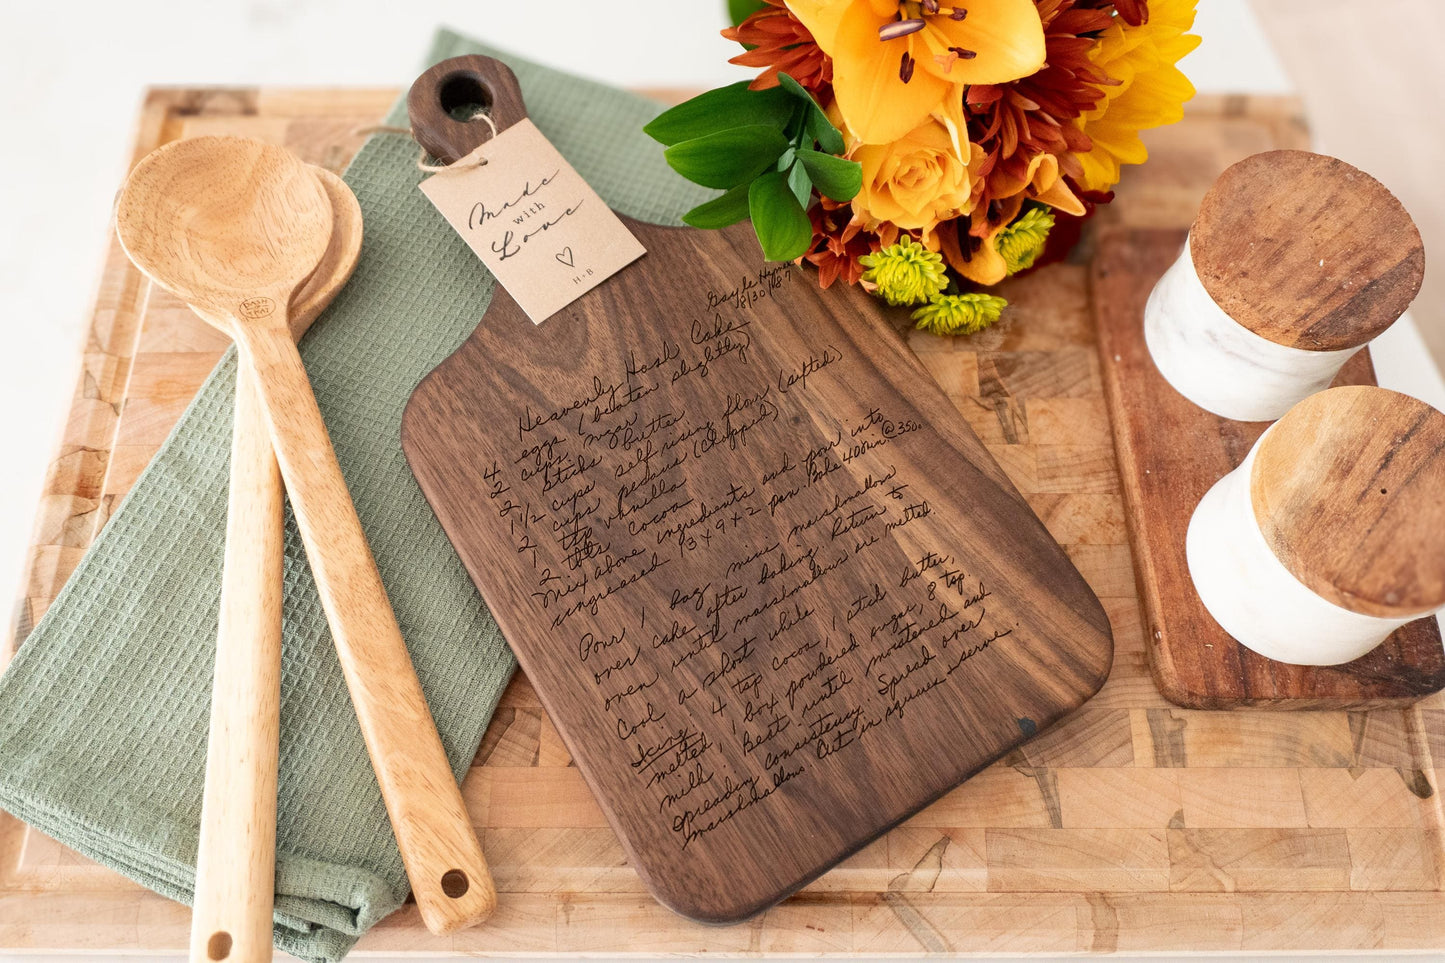 Made
with
Love
H+B
Gayle
8/30/87
Heavenly Hash Cake
4 eggs (beaten slightly)
2 cups sugar
2 sticks butter
1 1/2 cups self rising flour (sifted)
2 cups pecans (chopped)
1 tsp vanilla
2 tbls cocoa
Mix above ingredients and pour into
ungreased 13 x 9 x 2 pan. Bake 40 min @ 350.
Pour 1 bag mini marshmallows
over cake after baking. Return to
oven until marshmallows are melted.
Cool a short while.
Icing: 4 tsp cocoa, 1 stick butter,
melted, 1 box powdered sugar, 8 tsp
milk. Beat until moistened and
spreading consistency. Spread over
marshmallows. Cut in squares & serve.